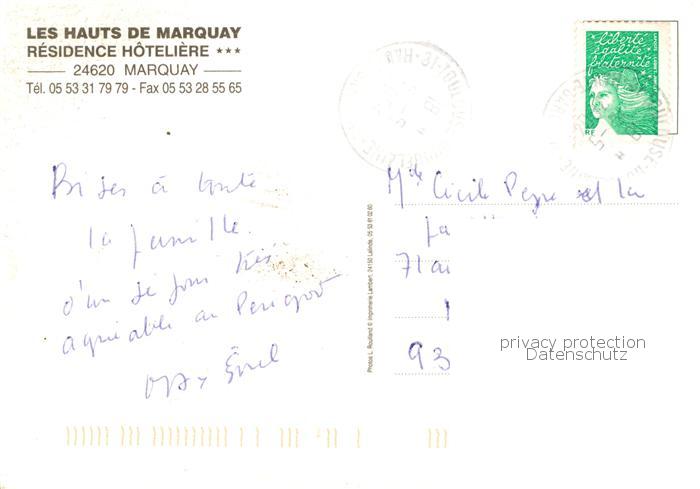 LES HAUTS DE MARQUAY
RÉSIDENCE HÔTELIÈRE ★★★
24620 MARQUAY
Tél. 05 53 31 79 79 - Fax 05 53 28 55 65
liberté
égalité
fraternité
RF
Bises à toute
la famille
d'un séjour très
agréable au Périgord
Photos L. Roulland © Imprimerie Lambert, 24150 Lalinde, 05 53 61 02 60
Mlle Cécile Peyre et la
fa
71 
1
93
privacy protection
Datenschutz